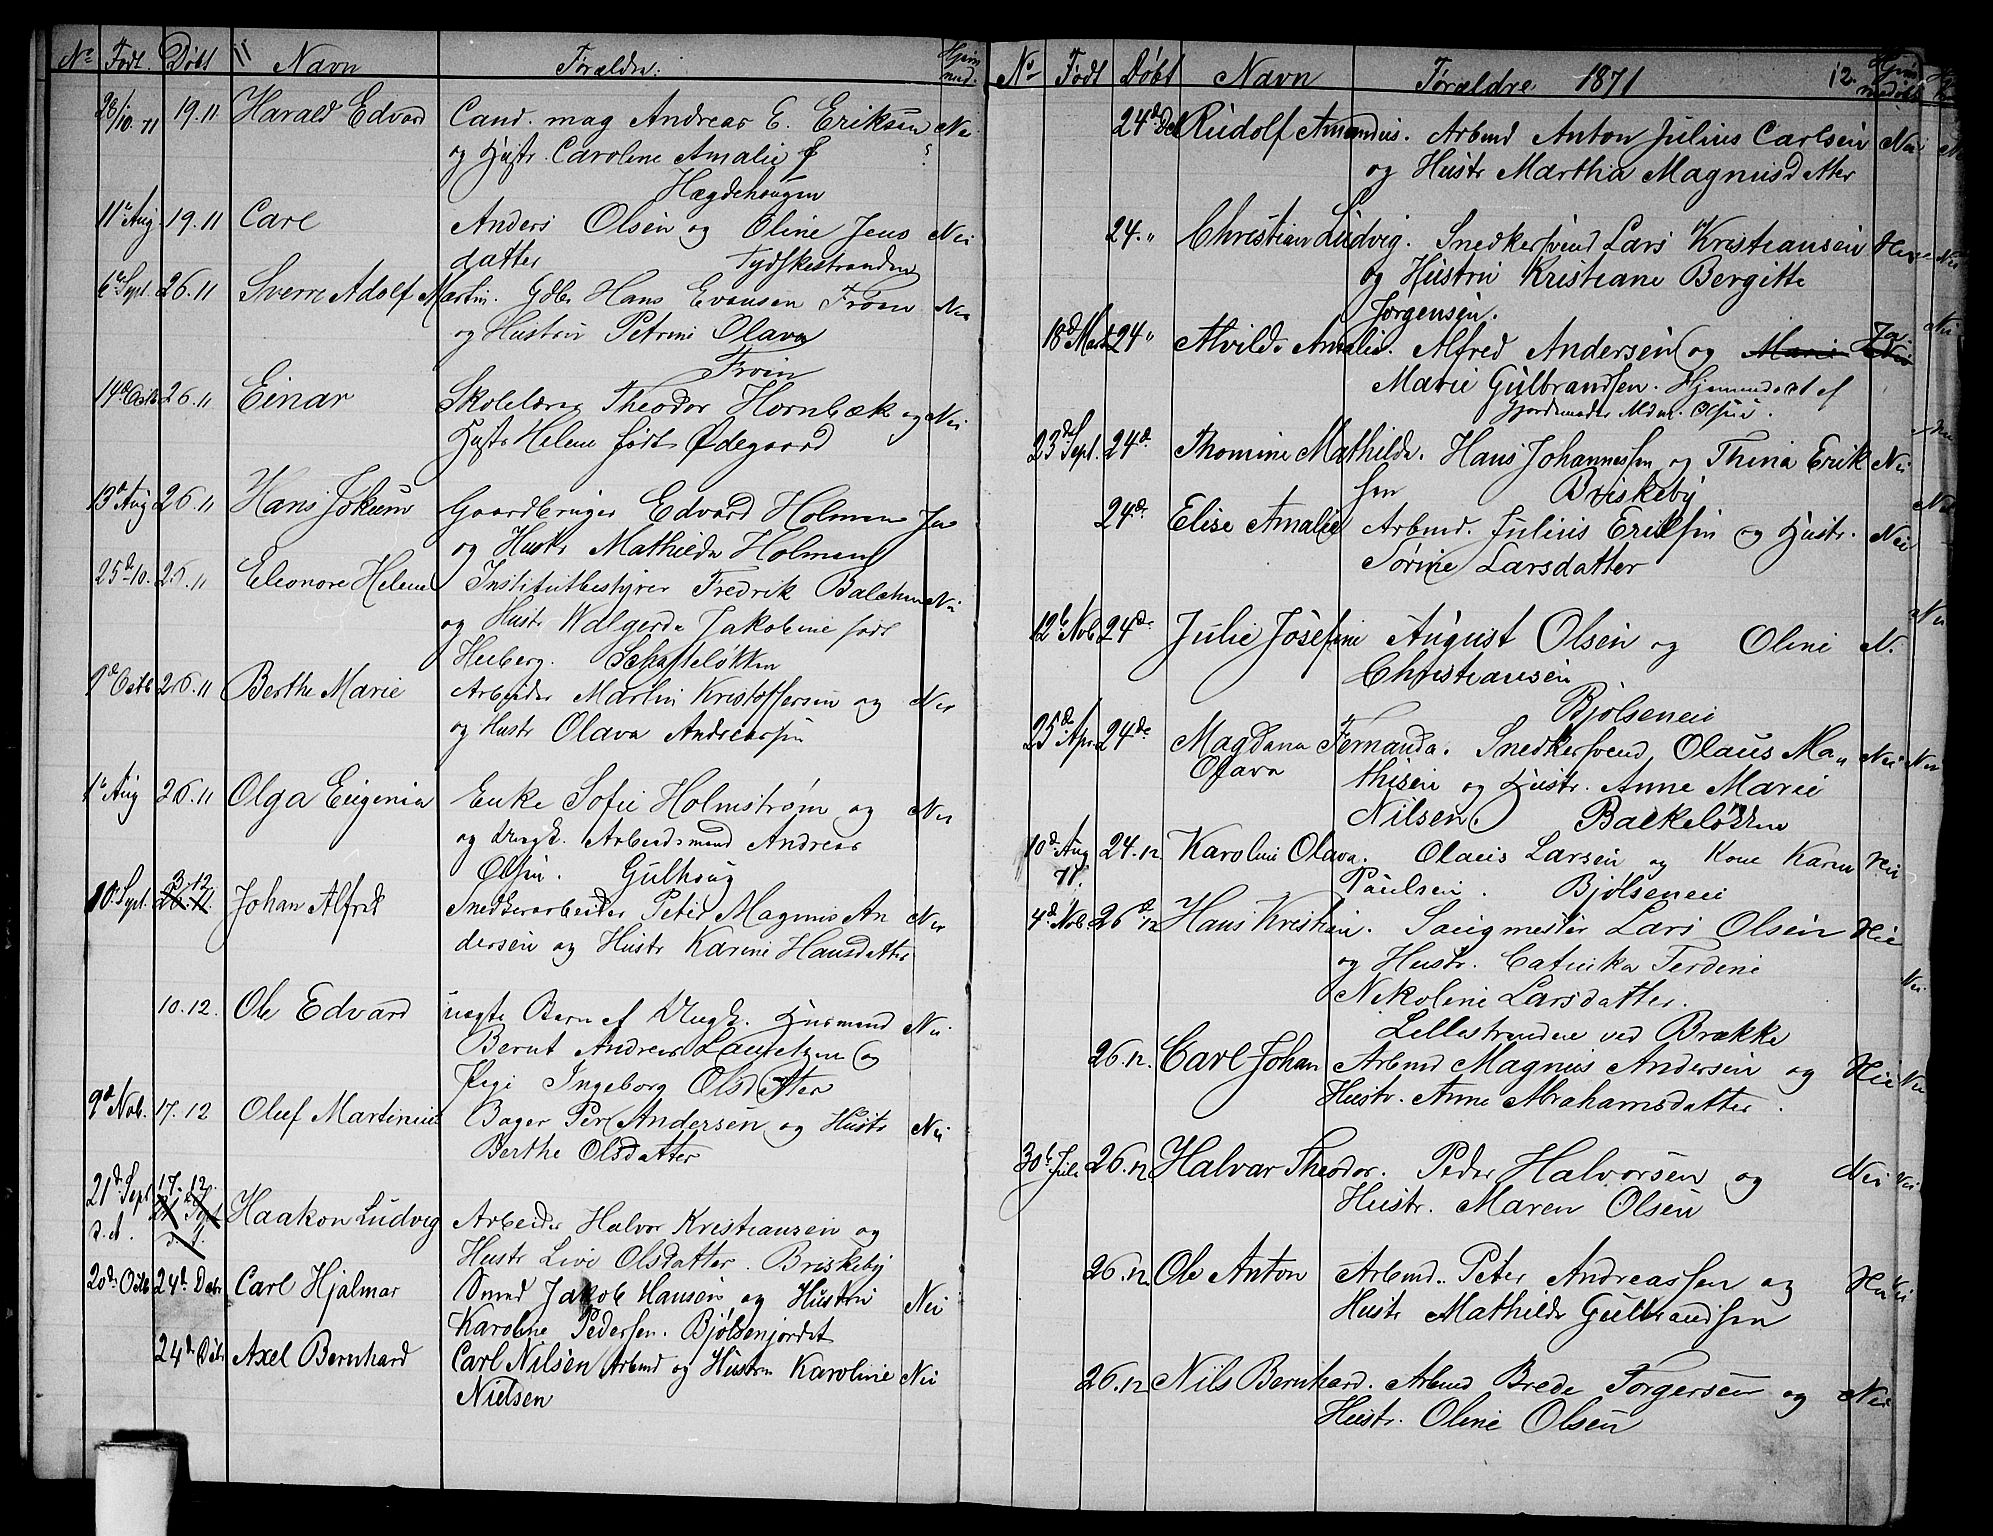 No Født. Døbt 11 Navn Forældre. Hjem med.
28/10.71 19.11 Harald Edvard Cand. mag Andreas E. Eriksen Nei
og Hustr. Caroline Amalie f
Hægdehougen
11te Aug 19.11 Carl Anders Olsen og Oline Jens Nei
datter Tydskestranden
6te Sept. 26.11 Sverre Adolf Martin. Gdbr Hans Evensen Frøen Nei
og Hustru Petrine Olava
Frøen
14de Octb 26.11 Einar Skolelærer Theodor Hornbæk og Nei
Hustr Helene født Ødegaard
13de Aug 26.11 Hans Jokum Gaardbruger Edvard Holmen Ja
og Hustr Mathilde Holmen
25de 10. 26.11 Eleonore Helene Institutbestyrer Fredrik Balchen Nei
og Hustr Walgerda Jakobine født
Heiberg.
9de Octb 26.11 Berthe Marie Arbeider Martin Kristoffersen og Nei
og Hustr Olava Andreassen
1te Aug 26.11 Olga Eugenia Enke Sofie Holmstrøm og Nei
og Ungk. Arbeidsmand Andreas
Olsen. Gulhoug
10de Sept. 3.12 Johan Alfred Snedkerarbeider Peter Magnus An Nei
dersen og Hustr Karine Hansdatter
10.12. Ole Edvard uægte Barn af Ungk. Husmand Nei
Bernt Andreas Lauritzen og
Pige Ingeborg Olsdatter
9de Nob. 17.12 Oluf Martinius Bager Per Andersen og Hustr Nei
Berthe Olsdatter
21de Sept 17.12.
d.A. Haakon Ludvig Arbeider Halvor Kristiansen og
Hustr Live Olsdatter. Briskeby
20de Octb 24de Decbr Carl Hjalmar Smed Jakob Hansen og Hustru Nei
Karoline Pedersen. Bjølsenjordet
24de Dcbr Axel Bernhard Carl Nilsen Arbmd og Hustru Karoline Nei
Nielsen
No Født Døbt Navn Forældre 1871 12. Hjem medøbt
24de Dec Rudolf Amandus. Arbmd Anton Julius Carlsen Nei
og Hustr Martha Magnusdatter
24. " Christian Ludvig. Snedkersvend Lars Kristiansen Nei
og Hustru Kristiane Bergitte
Jørgensen.
18de Marts 24 " Alvilde Amalie. Alfred Andersen og Marie Ja
Marie Gulbrandsen. Hjemmedøbt af
Gjordemoder Mdm. Olsen.
23de Sept. 24de Thomine Mathilde. Hans Johannessen og Thina Erik Nei
sen Briskeby
24de Elise Amalie Arbmd. Julius Eriksen og Hustr. Nei
Sørine Larsdatter
12te Nob 24de Julie Josefine August Olsen og Oline N.
Christiansen
Bjølseneie
25de Apr. 24de Magdana Fernanda. Snedkersvend Olaus Ma Nei
Olava thisen og Hustr. Anne Marie
Nilsen Bakkeløkken
10de Aug 24.12 Karoline Olava. Olaus Larsen og Kone Karen Nei
71. Paulsen. Bjølseneie
4de Nob 26de 12 Hans Kristian. Saugmester Lars Olsen Nei
og Hustr. Catinka Ferdine
Nikoline Larsdatter.
Lillestrandene ved Brække
26.12. Carl Johan Arbmd Magnus Andersen og Nei
Hustr. Anne Abrahamsdatter.
30te Juli 26.12 Halvar Theodor. Peder Halvorsen og Nei
Hustr. Maren Olsen
26.12 Ole Anton Arbmd. Peter Andreassen og Nei
Hustr Mathilde Gulbrandsen
26.12 Nils Bernhard. Arbmd Brede Torgersen og Nei
Hustr. Oline Olsen